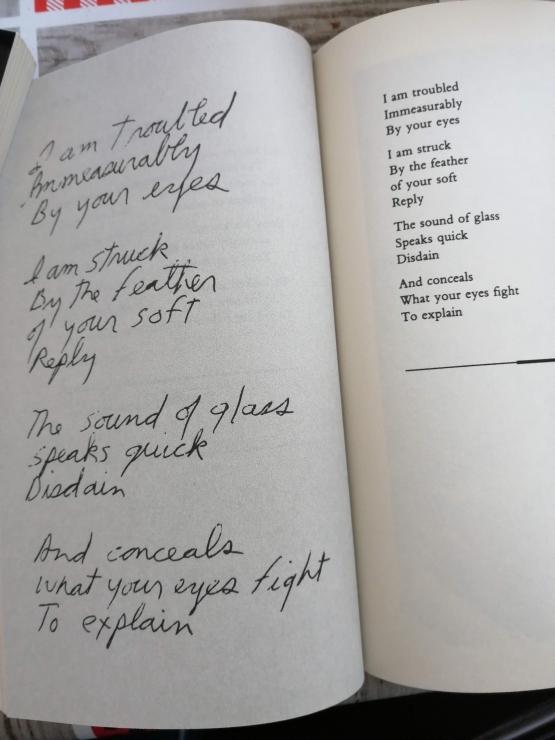 I am troubled
Immeasurably
By your eyes
I am struck
By the feather
of your soft
Reply
The sound of glass
speaks quick
Disdain
And conceals
what your eyes fight
To explain
I am troubled
Immeasurably
By your eyes
I am struck
By the feather
of your soft
Reply
The sound of glass
Speaks quick
Disdain
And conceals
What your eyes fight
To explain